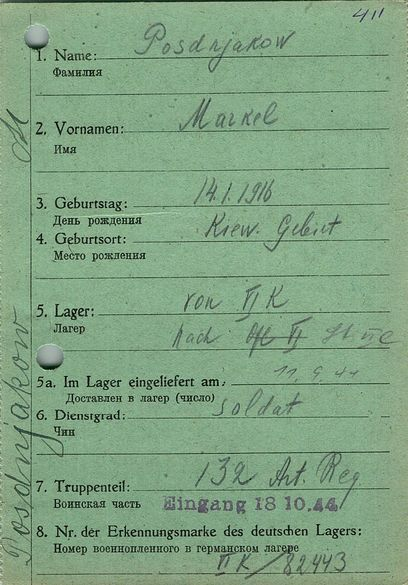 411
1. Name: Posdnjakow
Фамилия
2. Vornamen: Markel
Имя
3. Geburtstag: 14.1.1916
День рождения
4. Geburtsort: Kiew. Gebiet
Место рождения
5. Lager: von VI K
Лагер
nach Ofl VI St VI C
5a. Im Lager eingeliefert am: 11.9.44
Доставлен в лагер (число)
6. Dienstgrad: Soldat
Чин
7. Truppenteil: 132 Art. Reg
Воинская часть Eingang 18 10.44
8. Nr. der Erkennungsmarke des deutschen Lagers:
Номер военнопленного в германском лагере
VI K/82443
Posdnjakow M